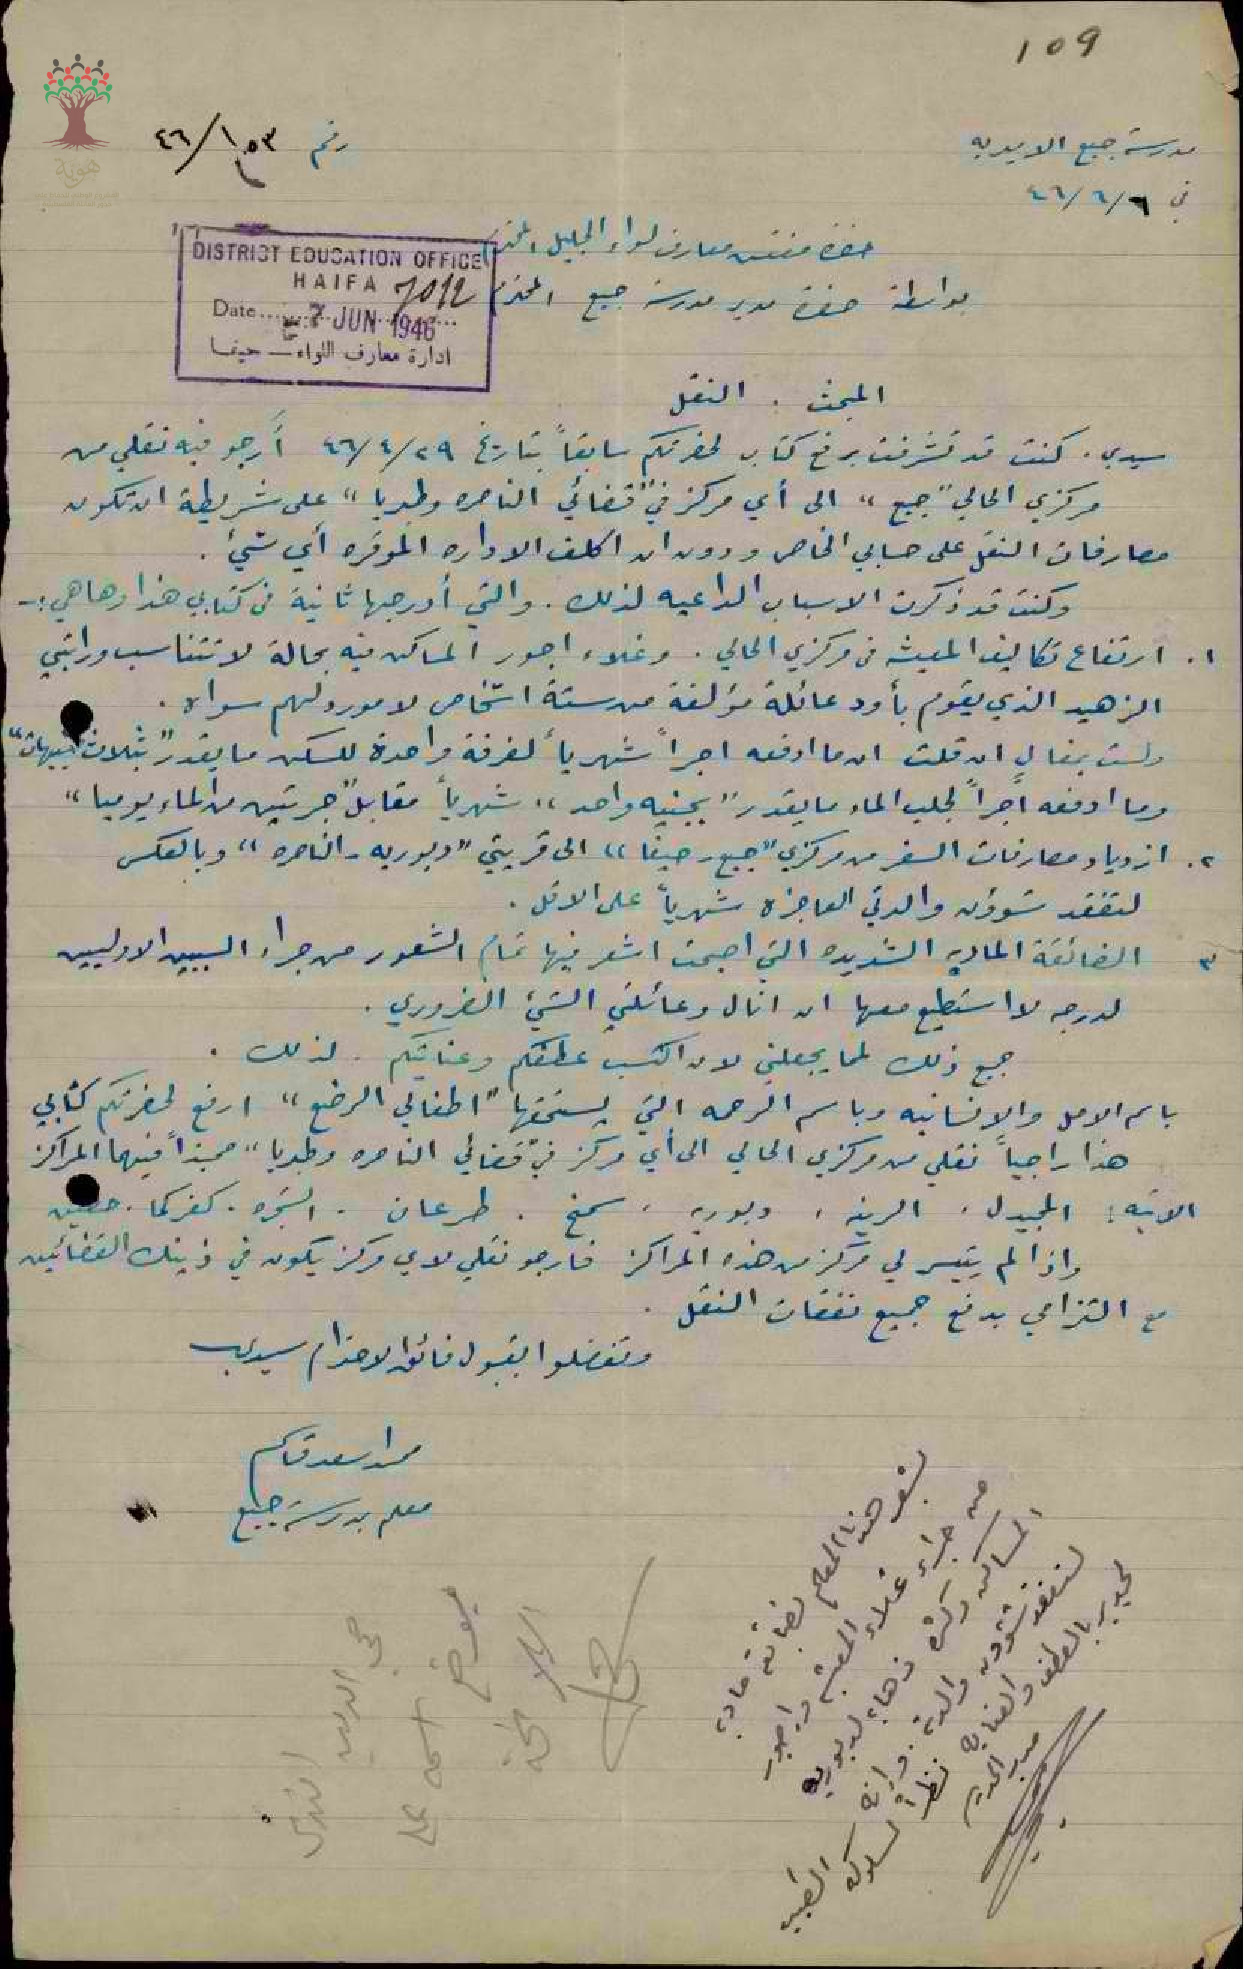 109
مدرسة جبع الاميريه
رقم ١٥٣/١/٤٦
في ٤٦/٦/٦
هوية
حضرة مفتش معارف لواء الجليل المحترم
بواسطة حضرة مدير مدرسة جبع المحترم
DISTRICT EDUCATION OFFICE
HAIFA 7012
Date 7 JUN 1946
ادارة معارف اللواء — حيفا
المبحث . النقل
سيدي . كنت قد تشرفت برفع كتاب لحضرتكم سابقاً بتاريخ ٤٦/٤/٢٩ أرجو فيه نقلي من
مركزي الحالي "جبع" الى أي مركز في "قضائي الناصره وطبريا" على شريطة ان تكون
مصارفات النقل على حسابي الخاص ودون ان اكلف الاداره الموقره أي شيء .
وكنت قد ذكرت الاسباب الداعيه لذلك . والتي أدرجها ثانية في كتابي هذا وها هي :-
١. ارتفاع تكاليف المعيشه في مركزي الحالي . وغلاء اجور المساكن فيه بحالة لا تتناسب وراتبي
الزهيد الذي يقوم بأود عائلة مؤلفة من ستة اشخاص لا مورد لهم سواه .
ولست بمغالٍ ان قلت ان ما ادفعه اجراً شهرياً لغرفة واحدة للسكن ما يقدر "بثلاث جنيهات"
وما ادفعه أجراً لجلب الماء ما يقدر "بجنيه واحد" شهرياً مقابل "جرتين من الماء يوميا"
٢. ازدياد مصارفات السفر من مركزي "جبع - حيفا" الى قريتي "دبوريه - الناصره" وبالعكس
لتفقد شؤون والدتي العاجزه شهرياً على الاقل .
٣ الضائقة الماديه الشديده التي اصبحت اشعر فيها تمام الشعور من جراء السببين الاوليين
لدرجه لا استطيع معها ان انال وعائلتي الشيء الضروري .
جميع ذلك لمما يجعلني لان اكتسب عطفكم وعنايتكم . لذلك .
باسم الامل والانسانيه وباسم الرحمه التي يستحقها "اطفالي الرضع" ارفع لحضرتكم كتابي
هذا راجياً نقلي من مركزي الحالي الى أي مركز في "قضائي الناصره وطبريا" محبذاً فيهما المراكز
الاتيه : المجيدل . الرينه . دبوريه . سمخ . طرعان . الشجره . كفركما . حطين
واذا لم يتيسر لي مركز من هذه المراكز فارجو نقلي لاي مركز يكون في ذينك القضائين
مع التزامي بدفع جميع نفقات النقل .
وتفضلوا بقبول فائق الاحترام سيدي
اسعد قاسم
معلم بمدرسة جبع
يشعر هذا المعلم بضائقة ماديه
من جراء غلاء المعيشه واجور
المساكن وكثرة ذهابه لدبوريه
لتفقد شؤون والدته . وانه
لجدير بالعطف والعنايه نظراً لسلوكه الطيب